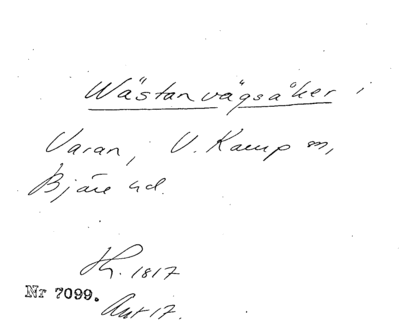 Wästanvägsåker i
Varan, V. Karup sn,
Bjäre hd.
1817
Nr 7099.
Akt 17.